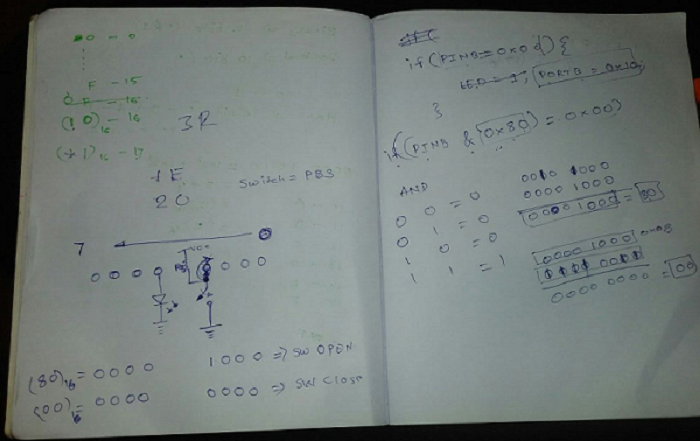 0 - 0
F - 15
(10)₁₆ - 16
(11)₁₆ - 17
3R
1E
20
Switch = PB3
7 0
0 0 0 0 0 0 0
(80)₁₆ = 0000 1000 => SW OPEN
(00)₁₆ = 0000 0000 => SW Close
if (PINB = 0x00) {
PORTB = 0x10;
}
if (PINB & 0x80) = 0x00)
AND
0 0 = 0
0 1 = 0
1 0 = 0
1 1 = 1
0000 1000
0000 1000
0000 1000 = 80
0000 1000 0x08
0000 0000 = 00